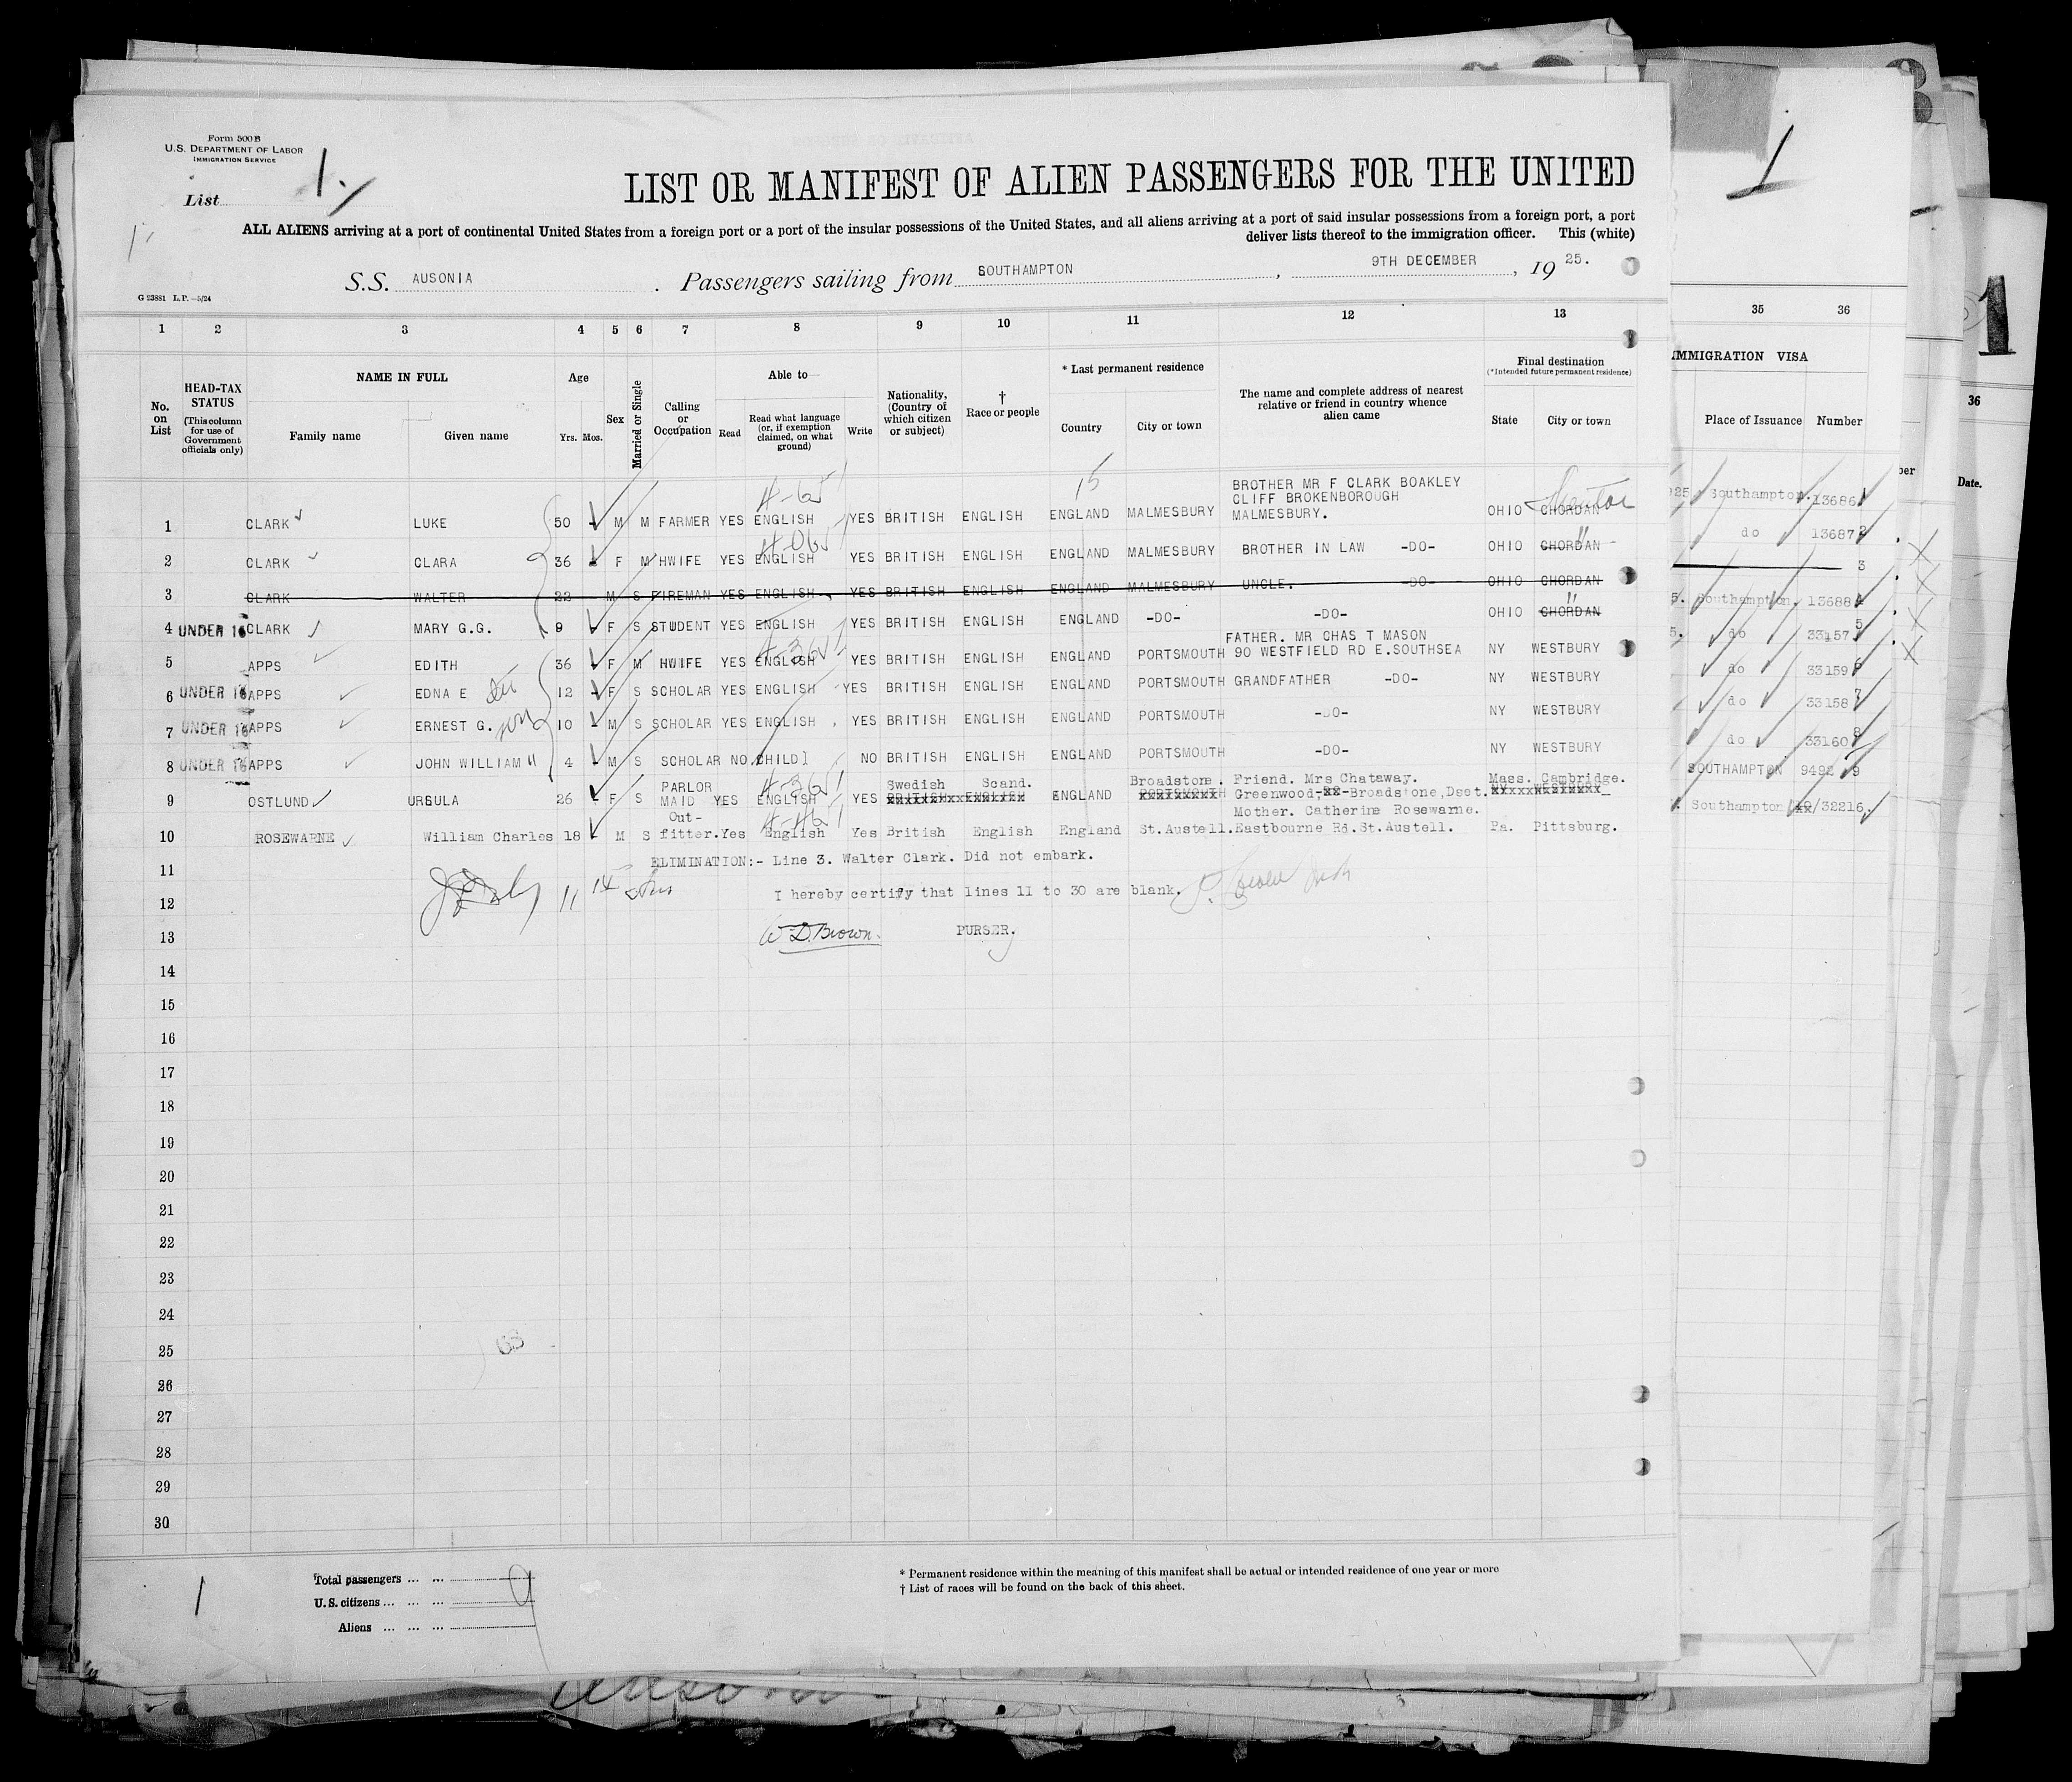 Form 500 B
U.S. DEPARTMENT OF LABOR
IMMIGRATION SERVICE
List 1.
LIST OR MANIFEST OF ALIEN PASSENGERS FOR THE UNITED
ALL ALIENS arriving at a port of continental United States from a foreign port or a port of the insular possessions of the United States, and all aliens arriving at a port of said insular possessions from a foreign port, a port
deliver lists thereof to the immigration officer. This (white)
S.S. AUSONIA . Passengers sailing from SOUTHAMPTON , 9TH DECEMBER , 19 25.
G 23881 L.P.—5/24
1 2 3 4 5 6 7 8 9 10 11 12 13 35 36
No. on List
HEAD-TAX STATUS (This column for use of Government officials only)
NAME IN FULL
Family name Given name
Age
Yrs. Mos.
Sex
Married or Single
Calling or Occupation
Able to—
Read Read what language (or, if exemption claimed, on what ground) Write
Nationality, (Country of which citizen or subject)
† Race or people
* Last permanent residence
Country City or town
The name and complete address of nearest relative or friend in country whence alien came
Final destination
(*Intended future permanent residence)
State City or town
IMMIGRATION VISA
Place of Issuance Number
36
Date.
1
1 CLARK LUKE 50 M M FARMER YES ENGLISH YES BRITISH ENGLISH ENGLAND MALMESBURY BROTHER MR F CLARK BOAKLEY CLIFF BROKENBOROUGH MALMESBURY. OHIO CHORDAN Southampton. 13686 1
2 CLARK CLARA 36 F M HWIFE YES ENGLISH YES BRITISH ENGLISH ENGLAND MALMESBURY BROTHER IN LAW -DO- OHIO CHORDAN " do 13687 2
3 CLARK WALTER 22 M S FIREMAN YES ENGLISH YES BRITISH ENGLISH ENGLAND MALMESBURY UNCLE. -DO- OHIO CHORDAN 3
4 UNDER 16 CLARK MARY G.G. 9 F S STUDENT YES ENGLISH YES BRITISH ENGLISH ENGLAND -DO- -DO- OHIO CHORDAN " Southampton. 13688 4
5 APPS EDITH 36 F M HWIFE YES ENGLISH YES BRITISH ENGLISH ENGLAND PORTSMOUTH FATHER. MR CHAS T MASON 90 WESTFIELD RD E.SOUTHSEA NY WESTBURY do 33157 5
6 UNDER 16 APPS EDNA E 12 F S SCHOLAR YES ENGLISH YES BRITISH ENGLISH ENGLAND PORTSMOUTH GRANDFATHER -DO- NY WESTBURY do 33159 6
7 UNDER 16 APPS ERNEST G. 10 M S SCHOLAR YES ENGLISH YES BRITISH ENGLISH ENGLAND PORTSMOUTH -DO- NY WESTBURY do 33158 7
8 UNDER 16 APPS JOHN WILLIAM " 4 M S SCHOLAR NO CHILD] NO BRITISH ENGLISH ENGLAND PORTSMOUTH -DO- NY WESTBURY do 33160 8
9 OSTLUND URSULA 26 F S PARLOR MAID YES ENGLISH YES Swedish Scand. ENGLAND Broadstone. Friend. Mrs Chataway. Greenwood, Broadstone,Dset. Mass. Cambridge. SOUTHAMPTON 9492 9
10 ROSEWARNE William Charles 18 M S Out-fitter. Yes English Yes British English England St.Austell. Mother. Catherine Rosewarne. Eastbourne Rd.St.Austell. Pa. Pittsburg. Southampton /32216.
11 ELIMINATION:- Line 3. Walter Clark. Did not embark.
12 I hereby certify that lines 11 to 30 are blank.
13 W D Brown. PURSER.
14
15
16
17
18
19
20
21
22
23
24
25
26
27
28
29
30
1
Total passengers ... ...
U.S. citizens ... ... ...
Aliens ... ... ...
9
* Permanent residence within the meaning of this manifest shall be actual or intended residence of one year or more
† List of races will be found on the back of this sheet.